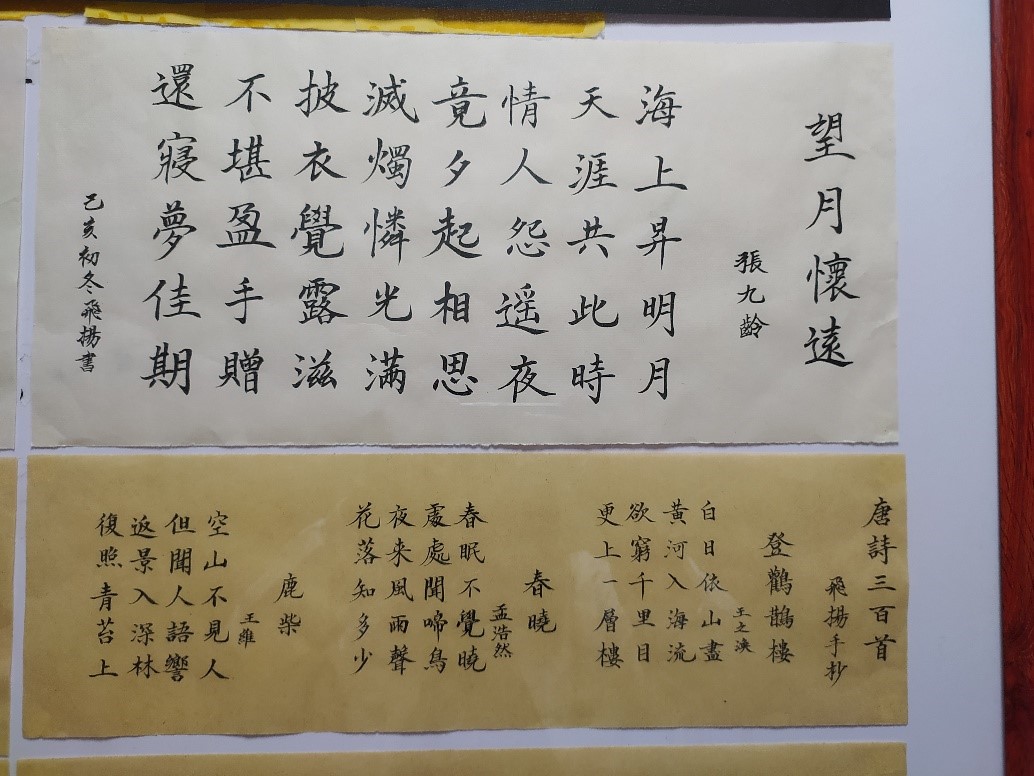 望月懷遠
張九齡
海上昇明月
天涯共此時
情人怨遥夜
竟夕起相思
滅燭憐光滿
披衣覺露滋
不堪盈手贈
還寢夢佳期
己亥初冬飛揚書
唐詩三百首
飛揚手抄
登鸛鵲樓
王之渙
白日依山盡
黄河入海流
欲窮千里目
更上一層樓
春曉
孟浩然
春眠不覺曉
處處聞啼鳥
夜来風雨聲
花落知多少
鹿柴
王維
空山不見人
但聞人語響
返景入深林
復照青苔上